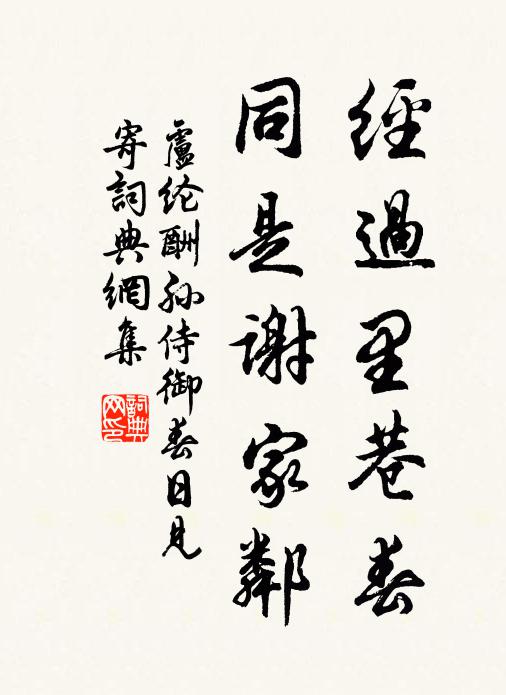 經過里巷春
同是謝家鄰
盧纶酬孙侍御春日見
寄詞典網集
詞典
网印